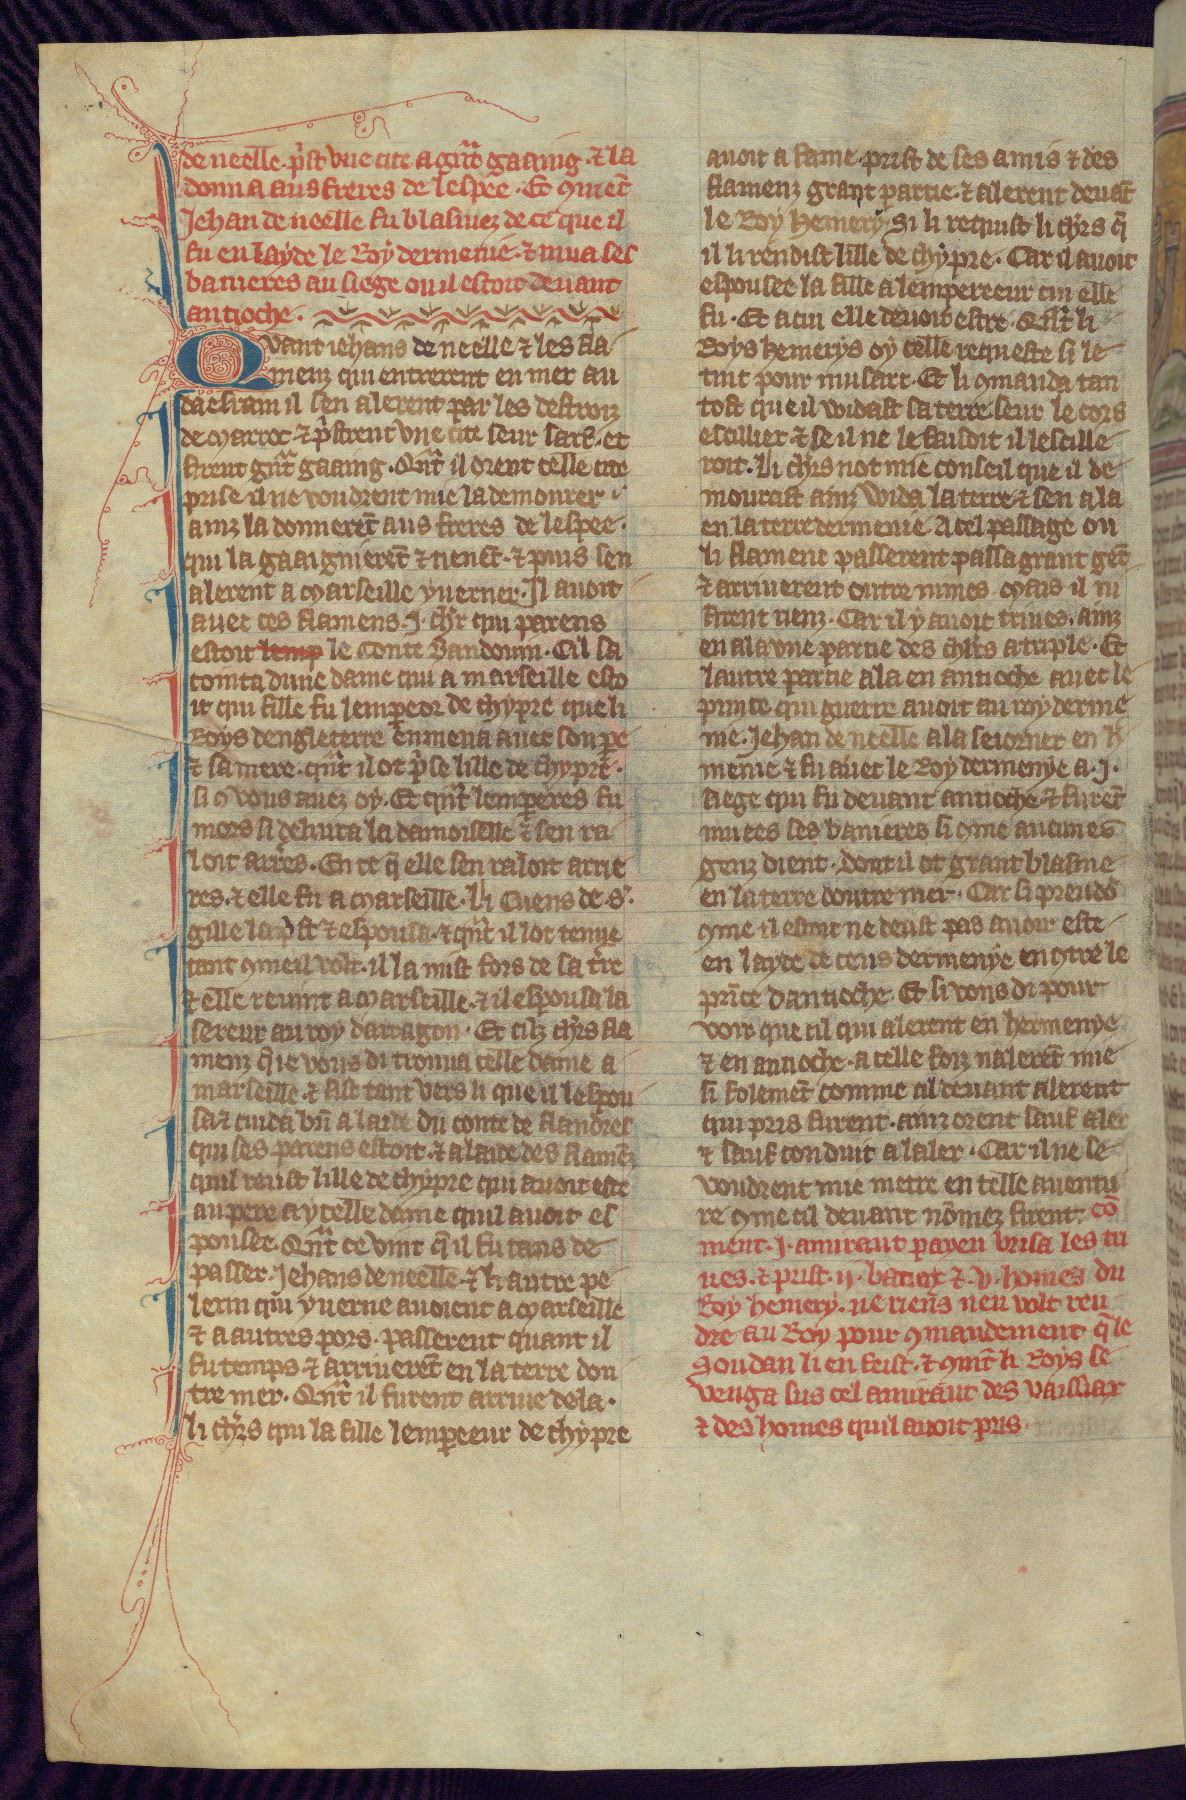 de neelle. p̃st vne cite a gr̃t gaaing. ⁊ la
donna aus freres de lespee. Et ꝯment
Jehan de neelle fu blasmez de ce que il
fu en layde le Roy dermenie. ⁊ mua ses
banieres au siege ou il estoit deuant
antioche.
Quant iehans de neelle ⁊ les fla
menz qui entrerent en mer au
da esfram il sen alerent par les destroiz
de marroc ⁊ p̃strent vne cite seur sarr. et
firent gr̃t gaaing. Qñt il orent celle cite
prise il ne voudrent mie la demourer
ainz la donnerẽt aus freres de lespee.
qui la gaaignierẽt ⁊ tienẽt. ⁊ puis sen
alerent a marseille yuerner. Il auoit
auec ces flamens .I. ch̃r qui parens
estoit le Conte Baudouin. Cil sa
cointa dune dame qui a marseille esto
it qui fille fu lempeor de chypre que li
Roys dengleterre enmena auec son pe
⁊ sa mere. qñt il ot p̃se lille de chypre.
si ꝯ vous auez oy. Et qñt lemperes fu
mors si deliura la damoiselle ⁊ sen ra
loit arrie͛s. En ce q̃ elle sen raloit arrie
res. ⁊ elle fu a marseille. li Cuens de s͛.
gille la p̃st ⁊ espousa. ⁊ qñt il lot tenue
tant ꝯme il volt. il la mist fors de sa t͛re
⁊ elle reuint a marseille. ⁊ il espousa la
sereur au roy darragon. Et cilz ch̃rs fla
menz q̃ ie vous di trouua celle dame a
marseille. ⁊ fist tant vers li que il lespou
sa ⁊ cuida bñ a laide du conte de flandres
qui ses parens estoit. ⁊ a laide des flamẽz
quil reust lille de chypre qui auoit este
au pere a ycelle dame quil auoit es
pousee. Qñt ce vint q̃ il fu tans de
passer. Jehans de neelle. ⁊ li autre pe
lerin qui yuerne auoient a marseille
⁊ a autres pors. passerent quant il
fu temps ⁊ arriuerẽt en la terre dou
tre mer. Qñt il furent arriue de la.
li ch̃rs qui la fille lempeeur de chypre
auoit a fame prist de ses amis ⁊ des
flamenz grant partie. ⁊ alerent deuãt
le Roy hemery. Si li requist li ch̃rs q̃
il li rendist lille de chypre. Car il auoit
espousee la fille a lempereeur cui elle
fu. Et a cui elle deuoit estre. Qñt li
Roys hemerys oy celle requeste si le
tint pour musart. Et li ꝯmanda tan
tost que il widast sa terre seur le cors
escillier ⁊ se il ne le faisoit il lescille
roit. Li ch̃rs not mie conseil que il de
mourast ainz wida la terre ⁊ sen ala
en la terre dermenie. A cel passage ou
li flament passerent passa grant gẽt
⁊ arriuerent outre mines mais il ni
firent rienz. Car il y auoit triues. ainz
en ala vne partie des ch̃rs a triple. Et
lautre partie ala en antioche auec le
prince qui guerre auoit au roy derme
nie. Jehan de neelle ala seiorner en h̃
menie ⁊ fu auec le Roy dermenye a .I.
siege qui fu deuant antioche. ⁊ furẽt
mutes ses banieres si ꝯme aucunes
genz dient. dont il ot grant blasme
en la terre doutre mer. Car si preudõs
ꝯme il estoit ne deust pas auoir este
en layde de ceus dermenye en ꝯtre le
pr̃ce dantioche. Et si vous di pour
voir que cil qui alerent en hermenye
⁊ en antioche. a celle foiz nalerẽt mie
si folemẽt comme cil deuant alerent
qui pris furent. ainz orent sauf aler
⁊ sauf conduit a laler. Car il ne se
voudrent mie metre en celle auentu
re ꝯme cil deuant nõmez firent. Cõ
ment .I. amiraut payen brisa les tri
ues. ⁊ prist .ij. batiax ⁊ .v. homes du
Roy hemery. ne riens nen volt ren
dre au Roy pour ꝯmandement q̃ le
Soudan li en feist. ⁊ ꝯmẽt li Roys se
venga sus cel amiraut des vaissiax
⁊ des homes quil auoit pris.